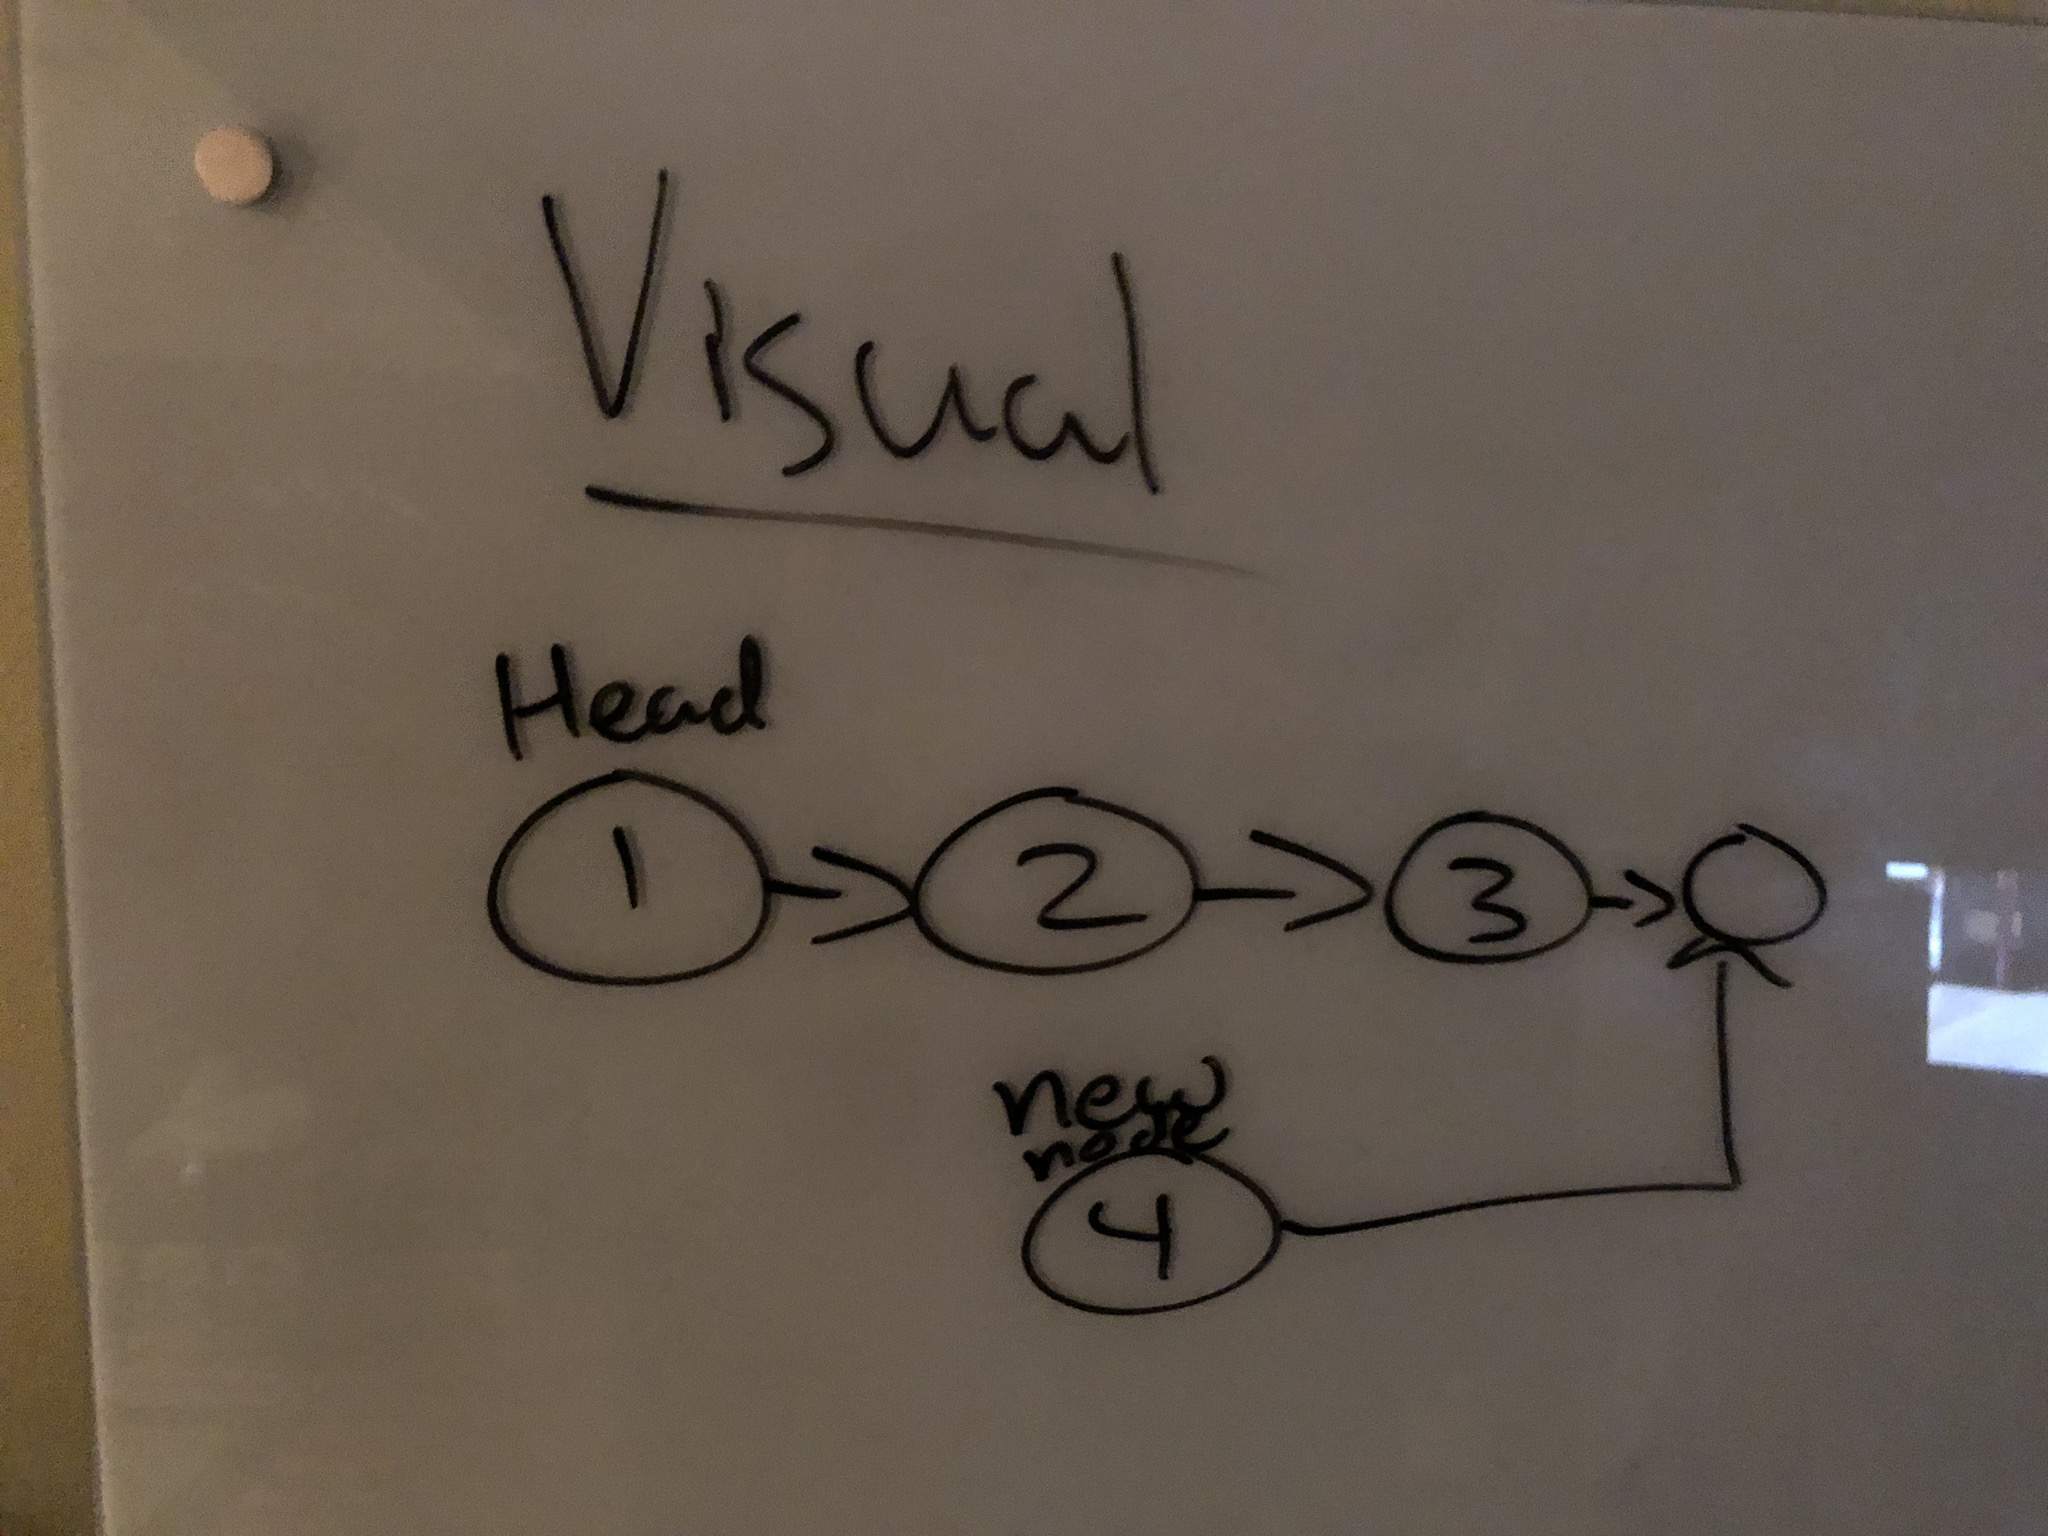 Visual
Head
1 2 3
new
node
4